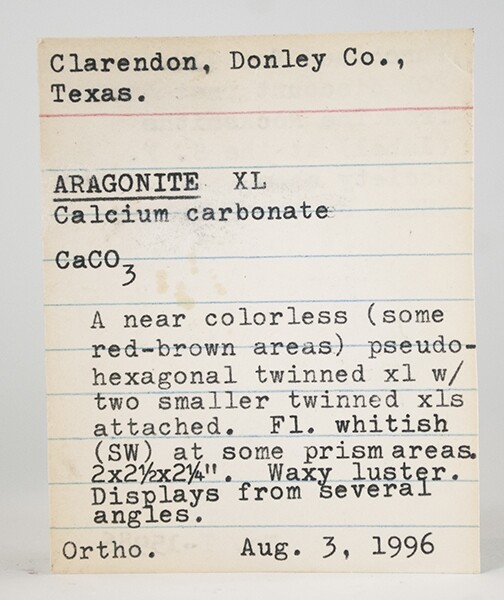 Clarendon, Donley Co.,
Texas.
ARAGONITE XL
Calcium carbonate
CaCO3
A near colorless (some
red-brown areas) pseudo-
hexagonal twinned xl w/
two smaller twinned xls
attached. Fl. whitish
(SW) at some prism areas.
2x2½x2¼". Waxy luster.
Displays from several
angles.
Ortho. Aug. 3, 1996